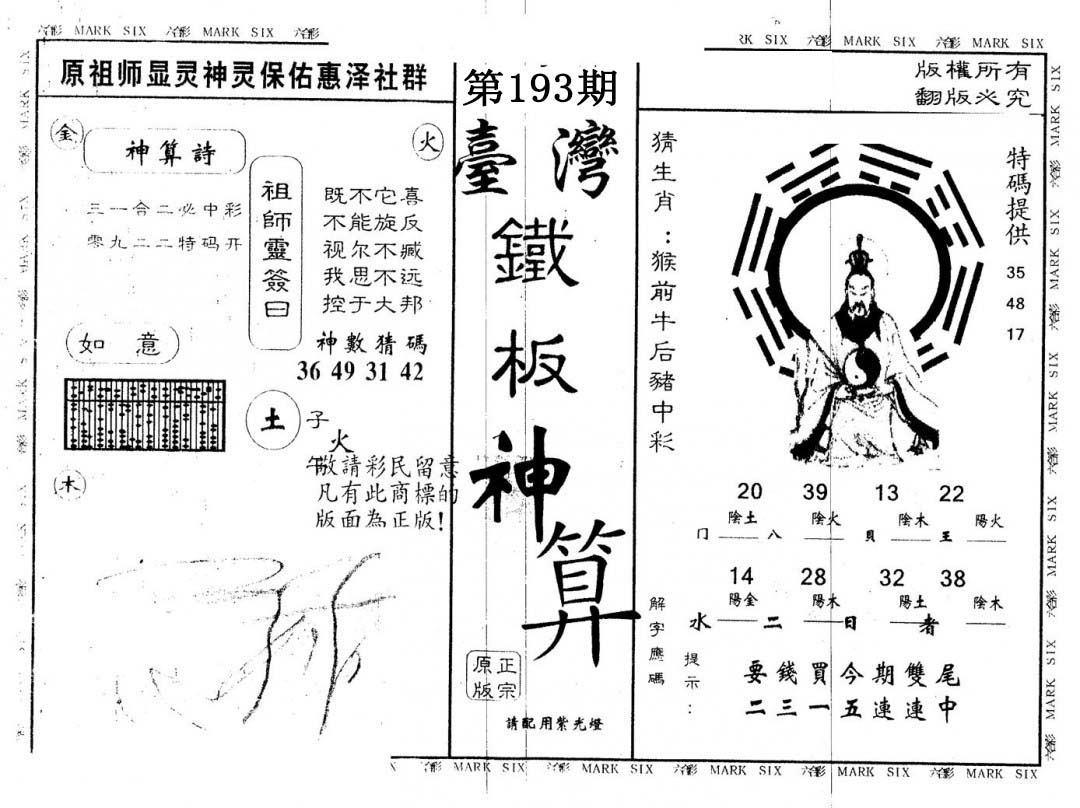 六合彩 MARK SIX 六合彩 MARK SIX 六合彩
RK SIX 六合彩 MARK SIX 六合彩 MARK SIX
原祖师显灵神灵保佑惠泽社群
金
火
神算詩
三一合二必中彩
零九二二特码开
祖師靈簽曰
既不它喜
不能旋反
视尔不臧
我思不远
控于大邦
如意
神數猜碼
36 49 31 42
土
子
火
午
木
敬請彩民留意
凡有此商標的
版面為正版!
第193期
臺灣
鐵
板
神
算
正宗
原版
請配用紫光燈
版權所有
翻版必究
猜生肖:猴前牛后豬中彩
特碼提供
35
48
17
20 39 13 22
陰土 陰火 陰木 陽火
门 八 貝 王
14 28 32 38
陽金 陽木 陽土 陰木
水 二 日 者
解字應碼
提示:
要錢買今期雙尾
二三一五連連中
六合彩 MARK SIX 六合彩 MARK SIX 六合彩 MARK SIX 六合彩 MARK SIX 六合彩 MARK SIX